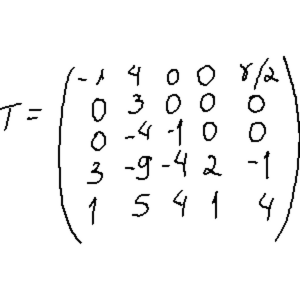 -1 4 0 0 γ/2
0 3 0 0 0
T = 0 -4 -1 0 0
3 -9 -4 2 -1
1 5 4 1 4